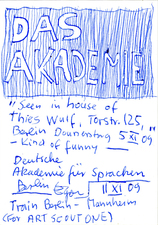 DAS
AKADEMIE
"Seen in house of
Thies Wulf, Torstr. 125,
Berlin Donnerstag 5 XI 09"
- Kind of funny —
Deutsche
Akademie für Sprachen
Berlin
11 XI 09
Train Berlin - Mannheim
(FOR ART SCOUT ONE)